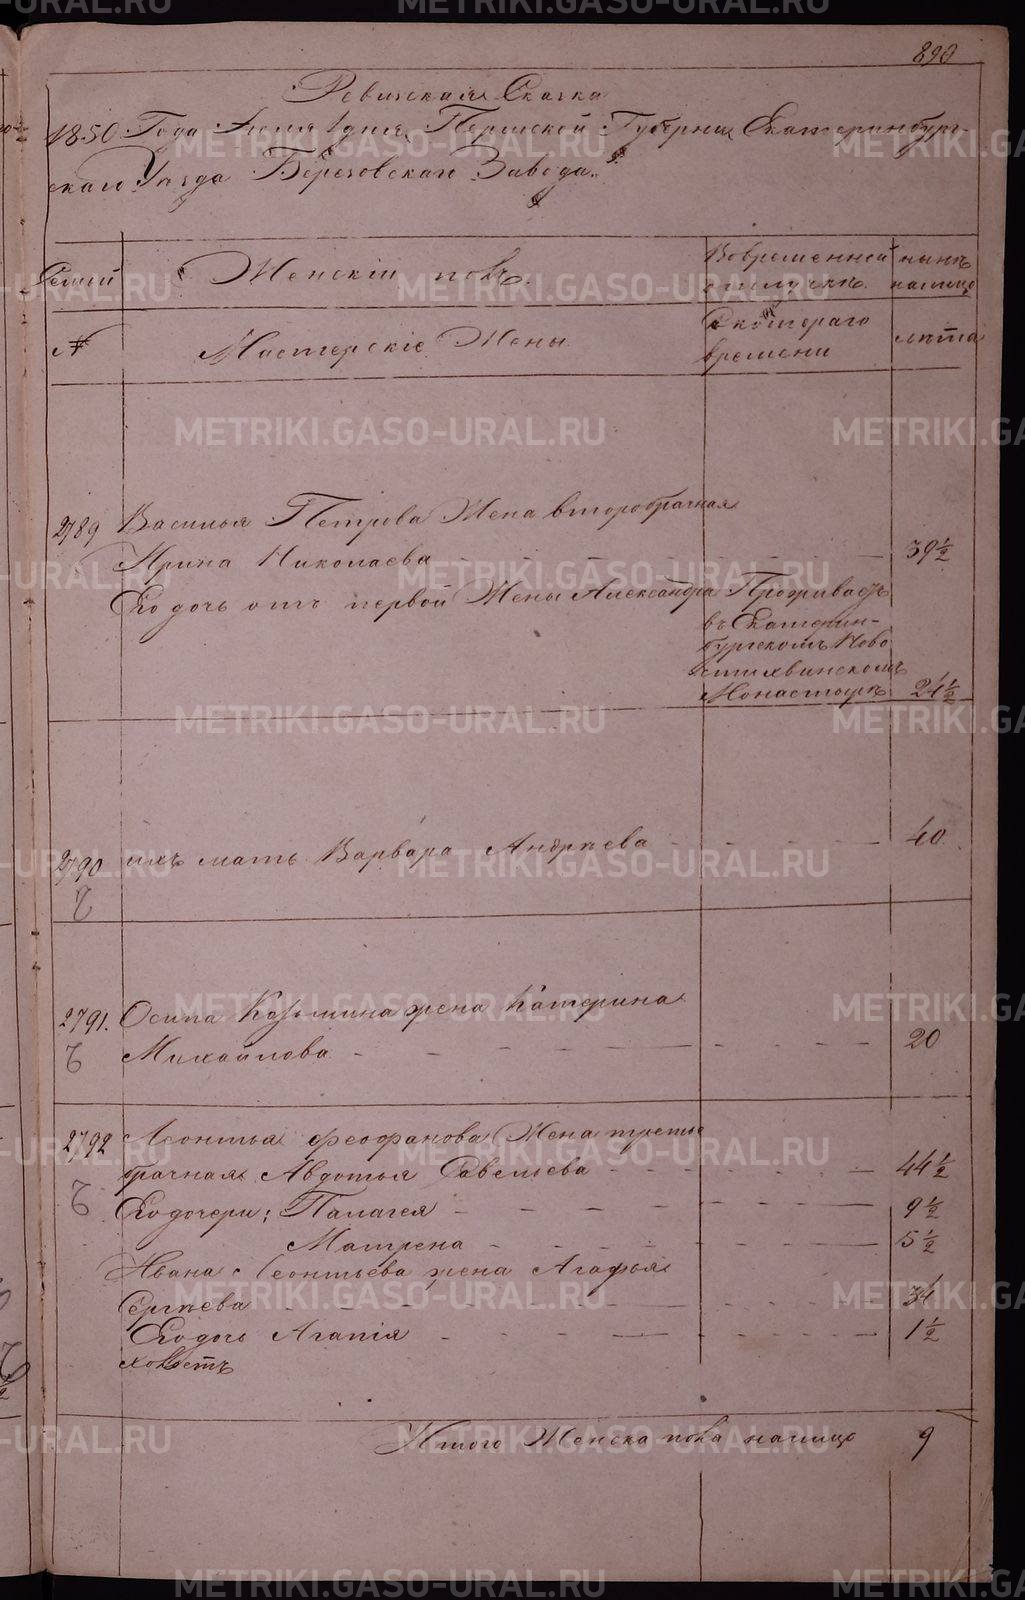 890
Ревизская Сказка
1850 Года Июня 1 дня, Пермской Губернии Екатеринбург-
скаго Уѣзда Березовскаго Завода.
Семей
Женскій полъ.
Вовременной
отлучкѣ.
нынѣ
налицо
№
Мастерскіе Жены
Скотораго
времени
лѣта
2789
Василья Петрова Жена второбрачная
Ирина Николаева
39 ½
Его дочь отъ первой Жены Александра
Проживаетъ
въ Екатерин-
бургскомъ Ново
тихвинскомъ
Монастырѣ
21 ½
2790
ихъ мать Варвара Андрѣева
40
2791.
Осипа Козьмина жена Катерина
Михайлова
20
2792
Леонтья Феофанова Жена третье
брачная Авдотья Савельева
44 ½
Его дочери: Палагея
9 ½
Матрена
5 ½
Ивана Леонтьева жена Агафья
Сергѣева
31
Его дочь Агапія
1 ½
Итого Женска пола налицо
9
METRIKI.GASO-URAL.RU